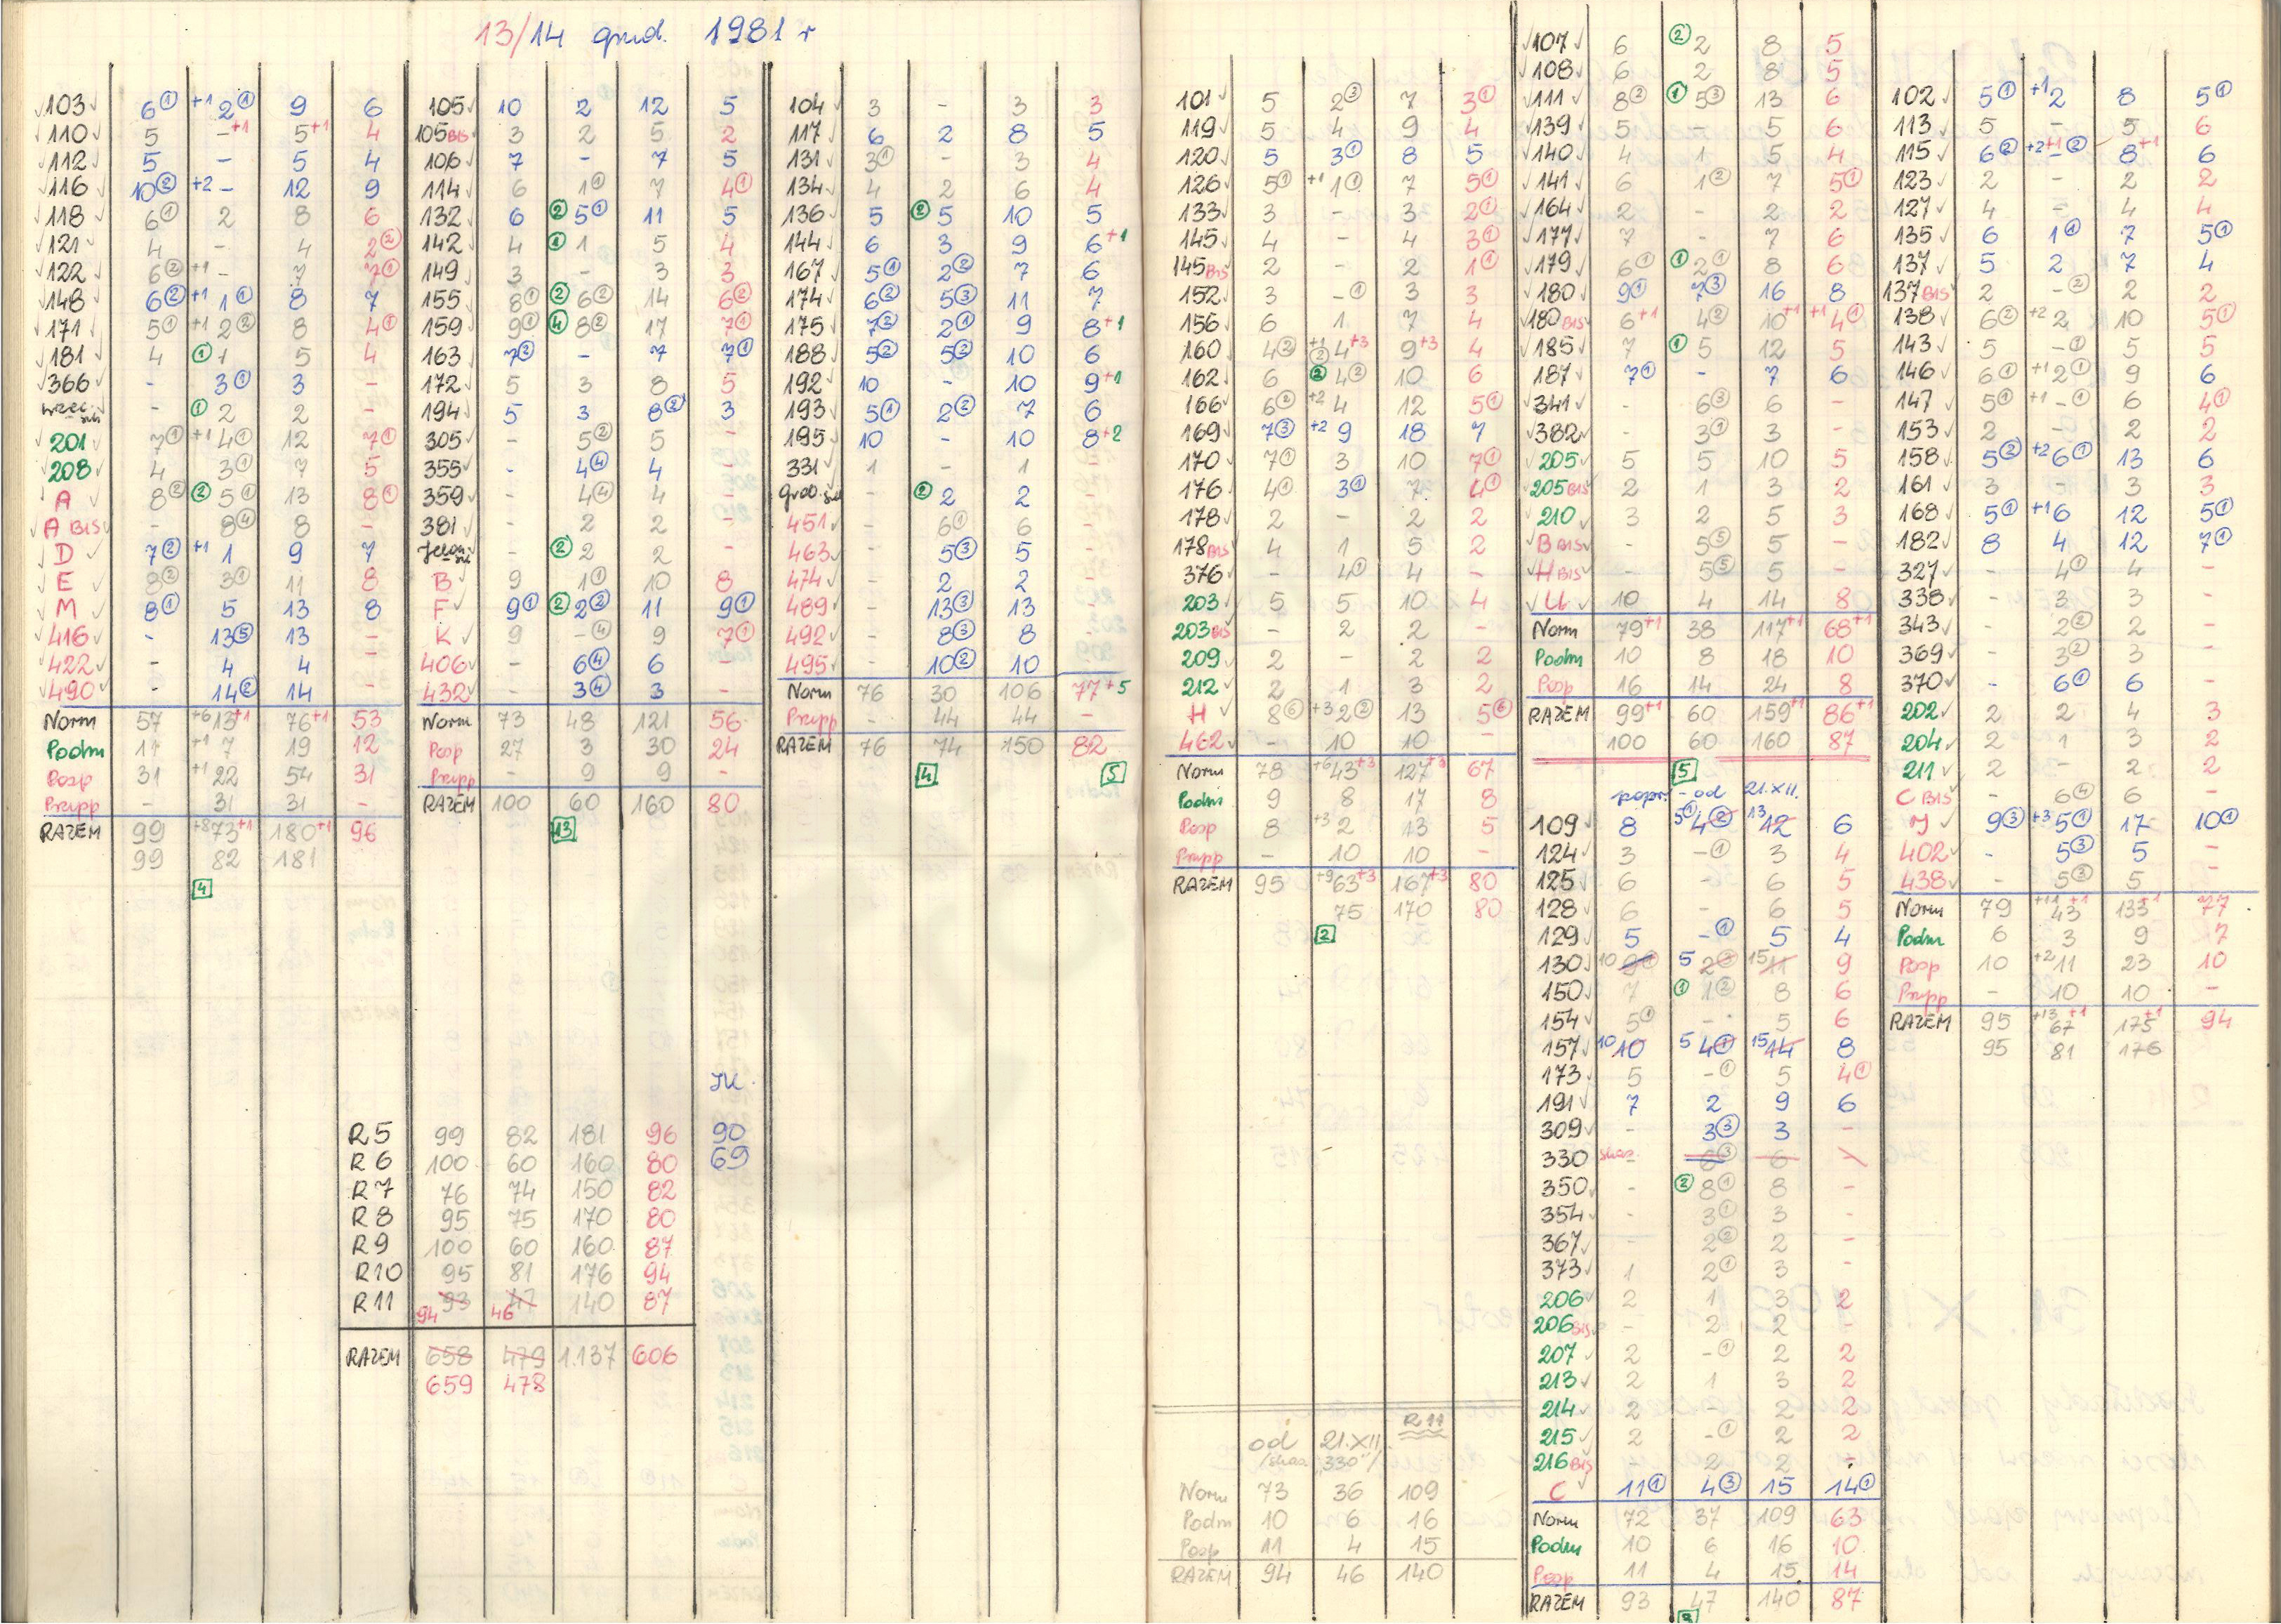 13/14 grud. 1981 r
103 6① +1 2① 9 6
110 5 -+1 5+1 4
112 5 - 5 4
116 10② +2 - 12 9
118 6① 2 8 6
121 4 - 4 2②
122 6② +1 - 7 7①
148 6② +1 1① 8 7
171 5① +1 2② 8 4①
181 4 ① 1 5 4
366 - 3① 3 -
- ① 2 2 -
201 7① +1 4① 12 7①
208 4 3① 7 5
A 8② ② 5① 13 8①
A BIS - 8④ 8 -
D 7② +1 1 9 7
E 8② 3① 11 8
M 8① 5 13 8
416 - 13⑤ 13 -
422 - 4 4 -
490 - 14② 14 -
Norm 57 +6 13+1 76+1 53
Podm 11 +1 7 19 12
Posp 31 +1 22 54 31
Przysp - 31 31 -
RAZEM 99 +8 73+1 180+1 96
99 82 181
4
105 10 2 12 5
105 BIS 3 2 5 2
106 7 - 7 5
114 6 1① 7 4①
132 6 ② 5① 11 5
142 4 ① 1 5 4
149 3 - 3 3
155 8① ② 6② 14 6②
159 9① ④ 8② 17 7①
163 7② - 7 7①
172 5 3 8 5
194 5 3 8② 3
305 - 5② 5 -
355 - 4④ 4 -
359 - 4④ 4 -
381 - 2 2 -
- ② 2 2 -
B 9 1① 10 8
F 9① ② 2② 11 9①
K 9 -④ 9 7①
406 - 6④ 6 -
432 - 3④ 3 -
Norm 73 48 121 56
Posp 27 3 30 24
Przysp - 9 9 -
RAZEM 100 60 160 80
13
104 3 - 3 3
117 6 2 8 5
131 3① - 3 4
134 4 2 6 4
136 5 ② 5 10 5
144 6 3 9 6+1
167 5① 2② 7 6
174 6② 5③ 11 7
175 7② 2① 9 8+1
188 5② 5② 10 6
192 10 - 10 9+1
193 5① 2② 7 6
195 10 - 10 8+2
331 1 - 1 -
- ② 2 2 -
451 - 6① 6 -
463 - 5③ 5 -
474 - 2 2 -
489 - 13③ 13 -
492 - 8③ 8 -
495 - 10② 10
Norm 76 30 106 77+5
Przysp - 44 44 -
RAZEM 76 74 150 82
4 5
JK.
R5 99 82 181 96 90
R6 100 60 160 80 69
R7 76 74 150 82
R8 95 75 170 80
R9 100 60 160 87
R10 95 81 176 94
R11 94 93 46 47 140 87
RAZEM 658 479 1.137 606
659 478
101 5 2③ 7 3①
119 5 4 9 4
120 5 3① 8 5
126 5① +1 1① 7 5①
133 3 - 3 2①
145 4 - 4 3①
145 BIS 2 - 2 1①
152 3 -① 3 3
156 6 1 7 4
160 4② +1 ② 4+3 9+3 4
162 6 ② 4② 10 6
166 6② +2 4 12 5①
169 7③ +2 9 18 7
170 7① 3 10 7①
176 4① 3① 7 4①
178 2 - 2 2
178 BIS 4 1 5 2
376 - 4① 4 -
203 5 5 10 4
203 BIS - 2 2 -
209 2 - 2 2
212 2 1 3 2
H 8⑥ +3 2② 13 5⑥
462 - 10 10 -
Norm 78 +6 43+3 127+3 67
Podm 9 8 17 8
Posp 8 +3 2 13 5
Przysp - 10 10 -
RAZEM 95 +9 63+3 167+3 80
75 170 80
2
od 21.XII. R 11
/skas. "330"/
Norm 73 36 109
Podm 10 6 16
Posp 11 4 15
RAZEM 94 46 140
107 6 ② 2 8 5
108 6 2 8 5
111 8② ① 5③ 13 6
139 5 - 5 6
140 4 1 5 4
141 6 1② 7 5①
164 2 - 2 2
177 7 - 7 6
179 6① ① 2① 8 6
180 9① 7③ 16 8
180 BIS 6+1 4② 10+1 +1 4①
185 7 ① 5 12 5
187 7① - 7 6
341 - 6③ 6 -
382 - 3① 3 -
205 5 5 10 5
205 BIS 2 1 3 2
210 3 2 5 3
B BIS - 5⑤ 5 -
H BIS - 5⑤ 5 -
U 10 4 14 8
Norm 79+1 38 117+1 68+1
Podm 10 8 18 10
Posp 16 14 24 8
RAZEM 99+1 60 159+1 86+1
100 60 160 87
5
popr. - od 21.XII.
109 8 5① 4② 13 12 6
124 3 -① 3 4
125 6 - 6 5
128 6 - 6 5
129 5 -① 5 4
130 10 9① 5 2② 15 11 9
150 7 ① 1② 8 6
154 5① - 5 6
157 10 10 5 4① 15 14 8
173 5 -① 5 4①
191 7 2 9 6
309 - 3③ 3 -
330 skas. - 6③ 6 -
350 - ② 8① 8 -
354 - 3① 3 -
367 - 2② 2 -
373 1 2① 3 -
206 2 1 3 2
206 BIS - 2 2 -
207 2 -① 2 2
213 2 1 3 2
214 2 - 2 2
215 2 -① 2 2
216 BIS - 2 2 -
C 11① 4③ 15 14①
Norm 72 37 109 63
Podm 10 6 16 10
Posp 11 4 15 14
RAZEM 93 47 140 87
102 5① +1 2 8 5①
113 5 - 5 6
115 6② +2+1 -② 8+1 6
123 2 - 2 2
127 4 - 4 4
135 6 1① 7 5①
137 5 2 7 4
137 BIS 2 -② 2 2
138 6② +2 2 10 5①
143 5 -① 5 5
146 6① +1 2① 9 6
147 5① +1 -① 6 4①
153 2 - 2 2
158 5② +2 6① 13 6
161 3 - 3 3
168 5① +1 6 12 5①
182 8 4 12 7①
327 - 4① 4 -
338 - 3 3 -
343 - 2② 2 -
369 - 3② 3 -
370 - 6① 6 -
202 2 2 4 3
204 2 1 3 2
211 2 - 2 2
C BIS - 6④ 6 -
Y 9③ +3 5① 17 10①
402 - 5③ 5 -
438 - 5③ 5 -
Norm 79 +11 43+1 133+1 77
Podm 6 3 9 7
Posp 10 +2 11 23 10
Przysp - 10 10 -
RAZEM 95 +13 67+1 175+1 94
95 81 176